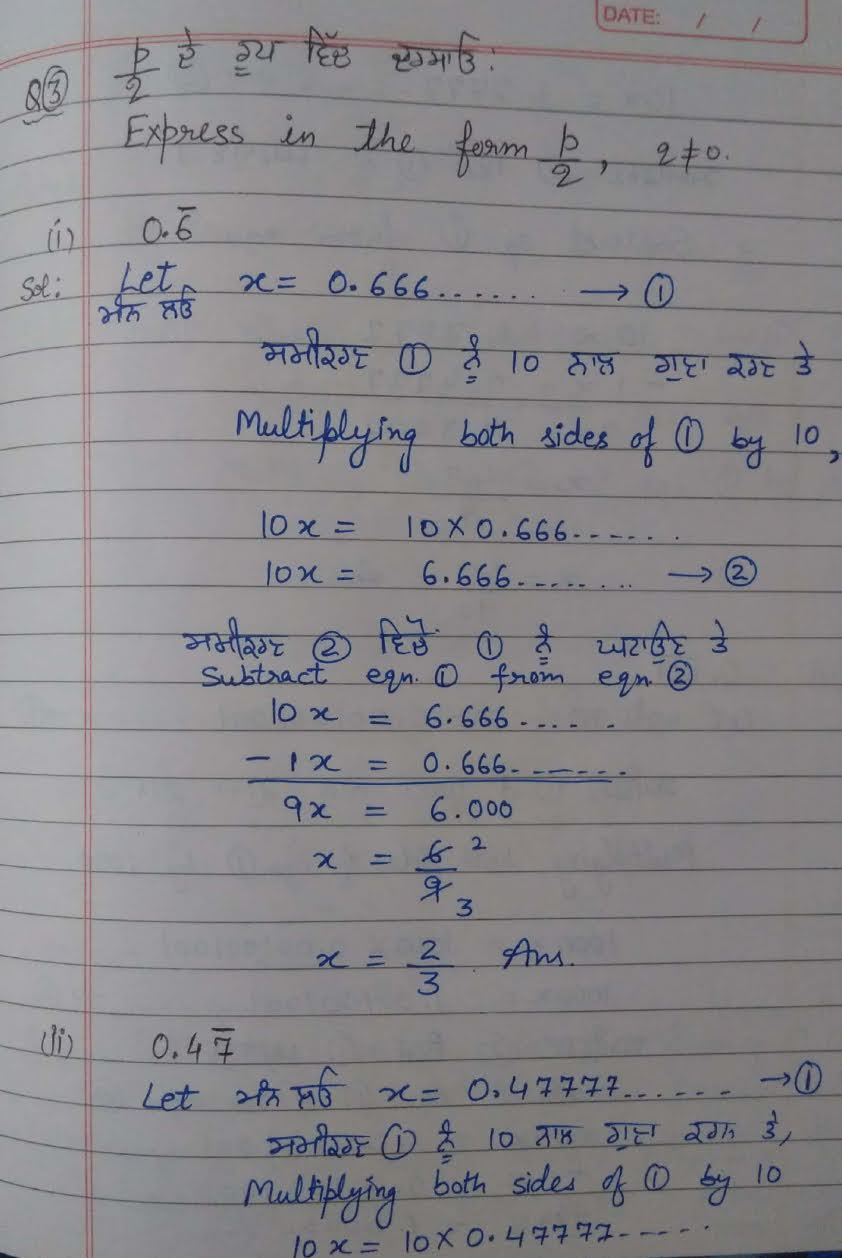 DATE: / /
Q③ p/q ਦੇ ਰੂਪ ਵਿੱਚ ਦਰਸਾਓ:
Express in the form p/q, q≠0.
(i) 0.6̅
Sol: Let x = 0.666...... → ①
ਮੰਨ ਲਓ
ਸਮੀਕਰਣ ① ਨੂੰ 10 ਨਾਲ ਗੁਣਾ ਕਰਣ ਤੇ
Multiplying both sides of ① by 10,
10x = 10 X 0.666......
10x = 6.666........ → ②
ਸਮੀਕਰਣ ② ਵਿੱਚੋਂ ① ਨੂੰ ਘਟਾਉਣ ਤੇ
Subtract eqn. ① from eqn. ②
10x = 6.666......
-1x = 0.666.......
9x = 6.000
x = 6/9 2 3
x = 2/3 Ans.
(ii) 0.47̅
Let ਮੰਨ ਲਓ x = 0.47777...... → ①
ਸਮੀਕਰਣ ① ਨੂੰ 10 ਨਾਲ ਗੁਣਾ ਕਰਨ ਤੇ,
Multiplying both sides of ① by 10
10x = 10 X 0.47777-----